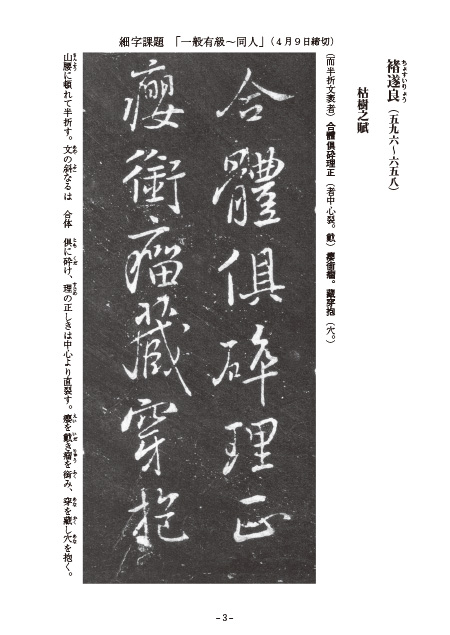 細字課題 「一般有級～同人」（4月9日締切）
褚遂良（五九六～六五八）
ちょすいりょう
枯樹之賦
（而半折文衺者）合體俱碎理正（者中心裂。戴）癭銜瘤。藏穿抱（穴。）
合體俱碎理正
癭銜瘤藏穿抱
山腰に頓れて半折す。文の斜なるは 合体 俱に砕け、理の正しきは中心より直裂す。癭を戴き瘤を銜み、穿を藏し穴を抱く。
－3－